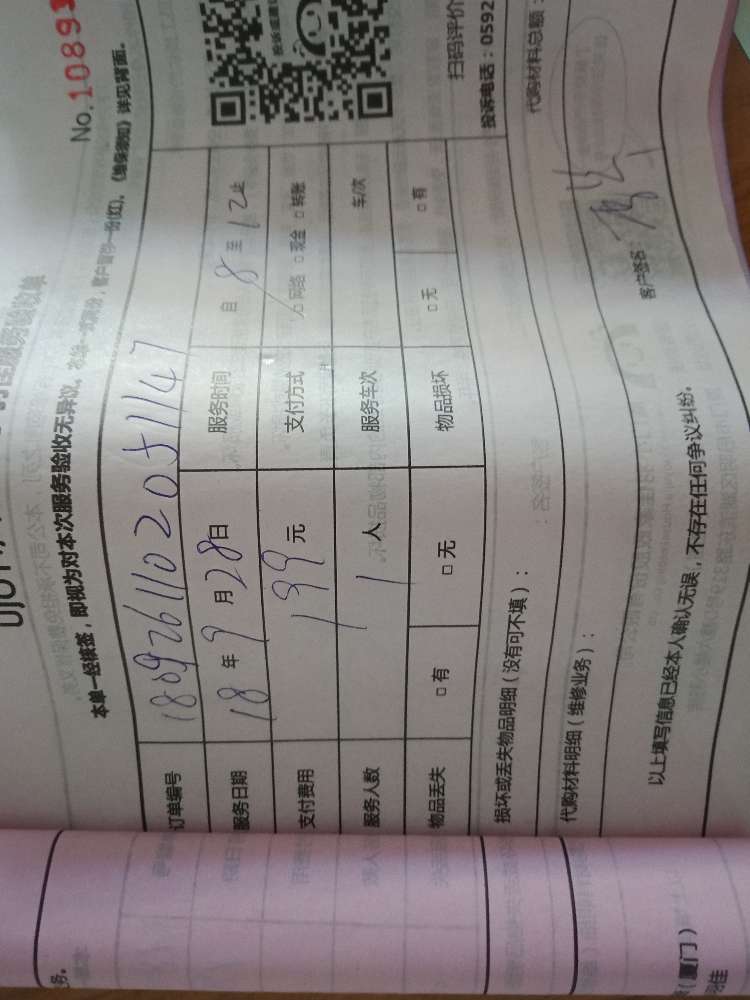 性服务验收单
No.10893
本单一经换签，即视为对本次服务验收无异议。本单一式两份，客户留存一份(红)。《维保须知》详见背面。
订单编号 1809261102051147
服务日期 18年9月28日 服务时间 自8至12止
支付费用 199元 支付方式 □网络 □现金 □转账
服务人数 1人 服务车次 车/次
物品丢失 □有 □无 物品损坏 □无 □有
扫码评价
投诉电话：0592
损坏或丢失物品明细（没有可不填）：
代购材料明细（维修业务）： 代购材料总额：
以上填写信息已经本人确认无误，不存在任何争议纠纷。
客户签名：
务。
（厦门）
佳